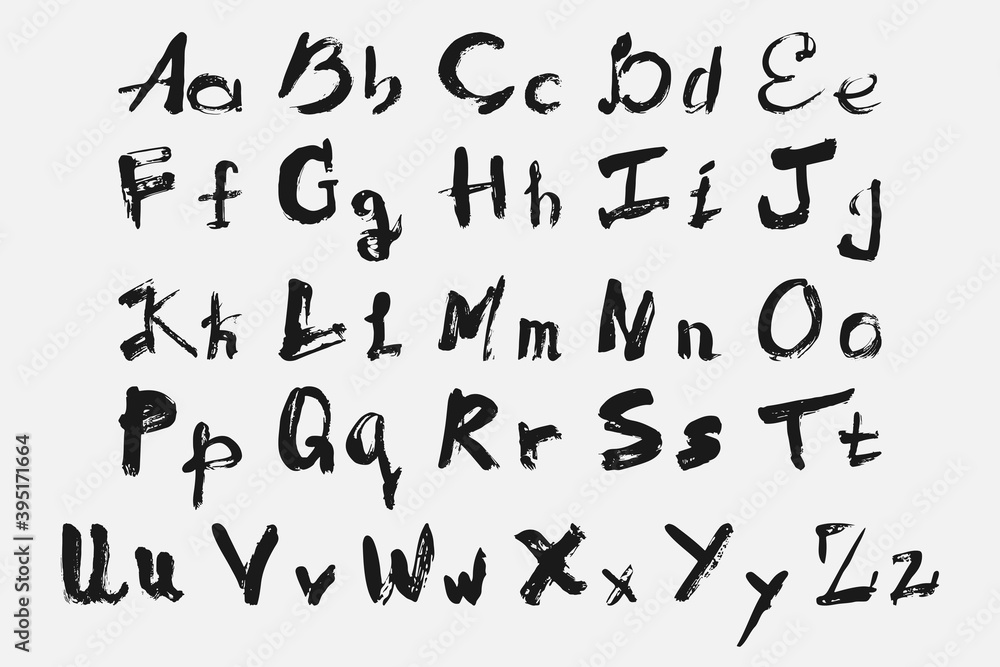 Aa Bb Cc Dd Ee
Ff Gg Hh Ii Jj
Kk Ll Mm Nn Oo
Pp Qq Rr Ss Tt
Uu Vv Ww Xx Yy Zz
Adobe Stock | #395171664